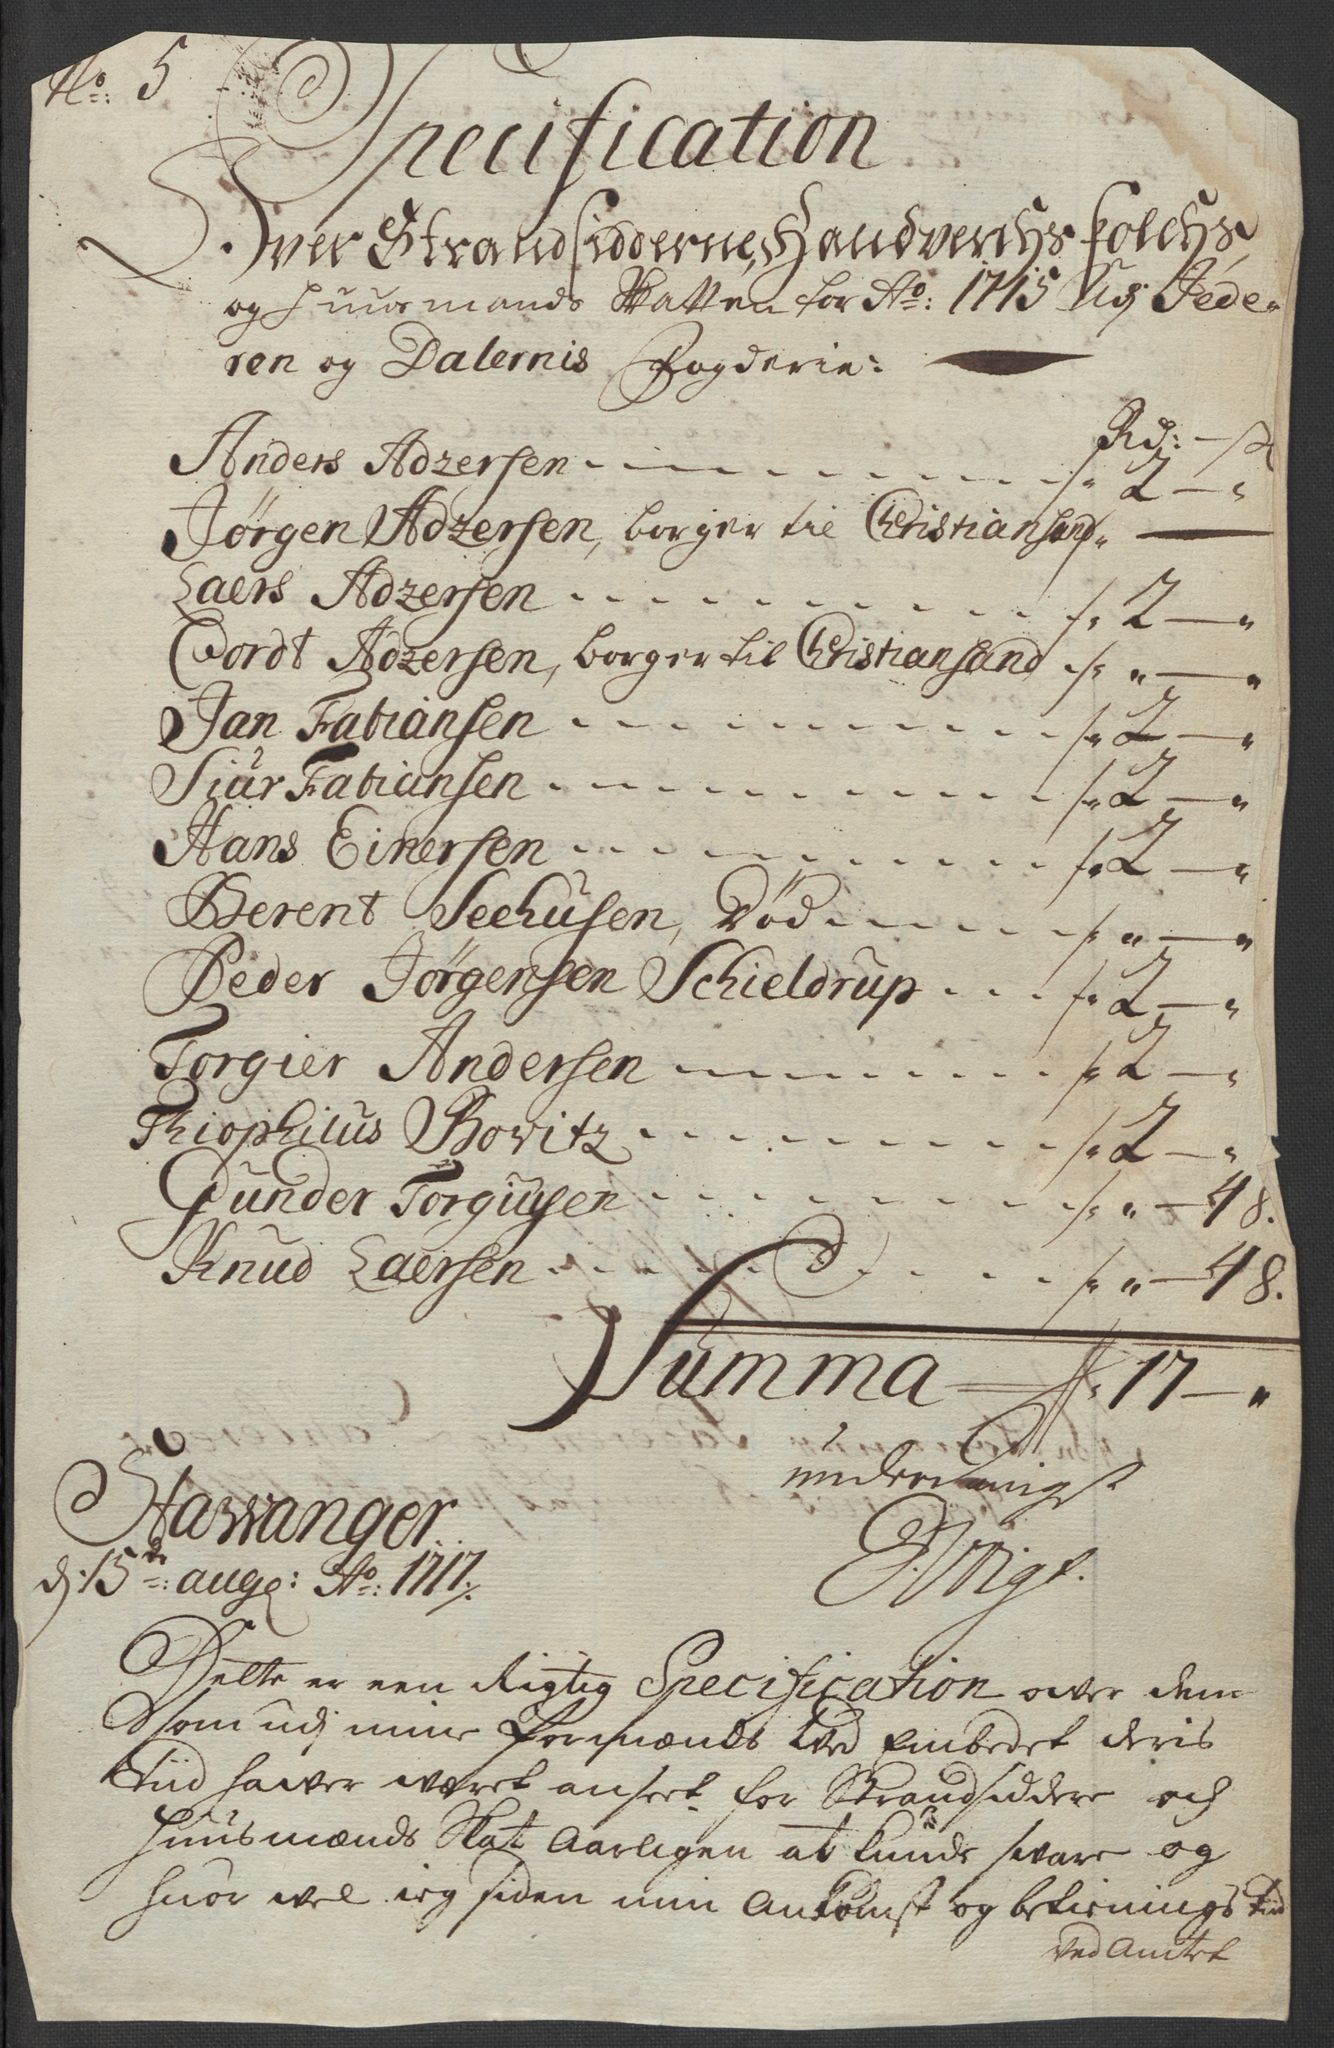 No: 5
Specification
Over Strandsidderne, Handverchs folchs,
og Huusmands Skatten for Ao: 1715 Udj Jede-
ren og Dalernis Fogderie:
Rd: — s
Anders Adzersen - - - 2 — "
Jörgen Adzersen, borger til Christiansand " —
Laers Adzersen - - - 2 — "
Cordt Adzersen, borger til Christiansand " — "
Jan Fabiansen - - - 2 — "
Siur Fabiansen - - - 2 — "
Hans Einersen - - - 2 — "
Berent Seehusen, Död - - - " — "
Peder Jörgensen Schieldrup - - - 2 — "
Torgier Andersen - - - 2 — "
Thiophilus Bowitz - - - 2 — "
Gunder Torgiusen - - - " — 48.
Knud Laersen - - - " — 48.
Summa — 17 — "
underdanigst
Stawanger
d: 15de: aug: Ao: 1717.
Dette er een Rigtig Specification over dem
som udj mine formænds ved Embedet deris
Tiid hawer wæret anseet for Strandsiddere och
Huusmænds Skat Aarligen at kunde sware og
huor wel ieg siden min Ankomst og betienings tiid
ved Amtet